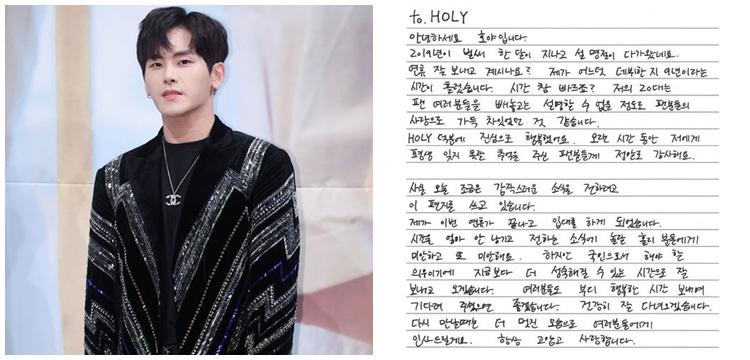 to. HOLY
안녕하세요 호야입니다.
2019년이 벌써 한 달이 지나고 설 명절이 다가왔네요.
연휴 잘 보내고 계시나요? 제가 어느덧 데뷔한 지 9년이라는
시간이 흘렀습니다. 시간 참 빠르죠? 저의 20대는
팬 여러분들을 빼놓고는 설명할 수 없을 정도로 팬분들의
사랑으로 가득 차있었던 것 같습니다.
HOLY 덕분에 진심으로 행복했어요. 오랜 시간 동안 저에게
평생 잊지 못할 추억을 주신 팬분들께 정말로 감사해요.
사실 오늘 조금은 갑작스러운 소식을 전하려고
이 편지를 쓰고 있습니다.
제가 이번 연휴가 끝나고 입대를 하게 되었습니다.
시간을 얼마 안 남기고 전하는 소식에 놀란 홀리 분들에게
미안하고 또 미안해요. 하지만 국민으로서 해야 할
의무이기에 지금보다 더 성숙해질 수 있는 시간으로 잘
보내고 오겠습니다. 여러분들도 부디 행복한 시간 보내며
기다려 주셨으면 좋겠습니다. 건강히 잘 다녀오겠습니다.
다시 만날때는 더 멋진 모습으로 여러분들에게
인사드릴게요. 항상 고맙고 사랑합니다.